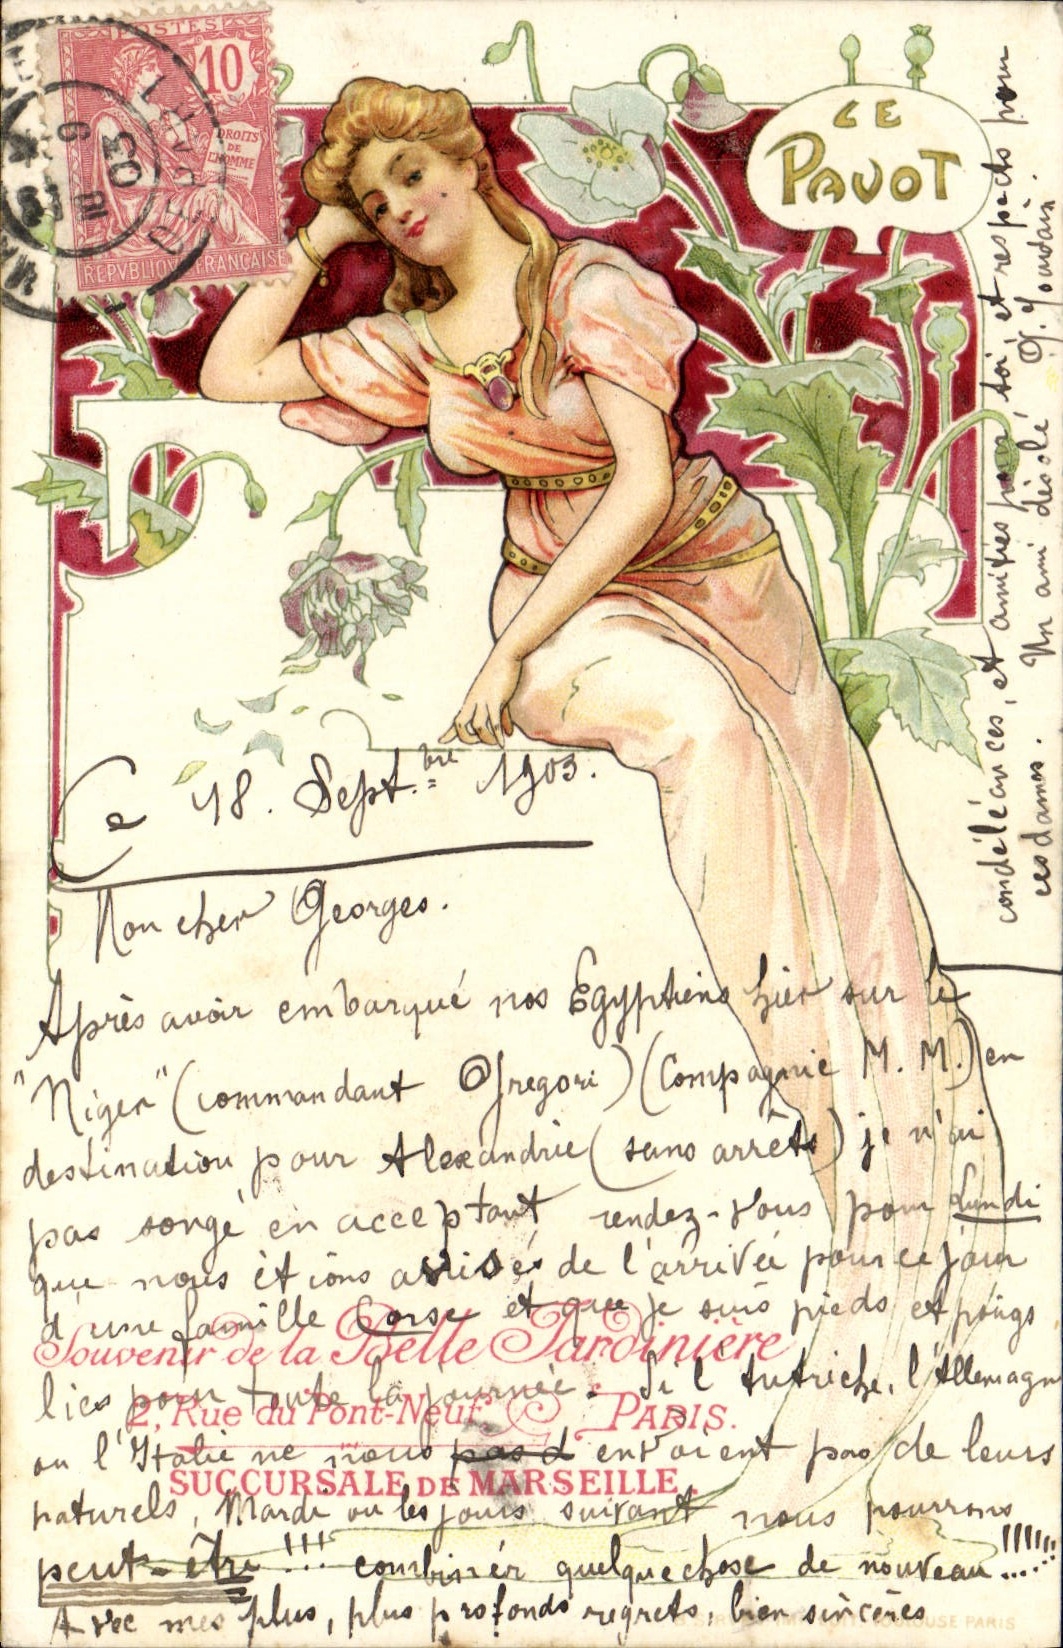 POSTES
10
DROITS
DE
L'HOMME
REPVBLIQVE FRANÇAISE
DEPART
9
03
LE
PAVOT
Ce 18. Sept.bre 1903.
Mon cher Georges.
Après avoir embarqué nos Egyptiens hier sur le
"Niger" (commandant Gregori) (Compagnie M. M.) en
destination pour Alexandrie (sans arrêts) je n'ai
pas songé en acceptant rendez-vous pour Lundi
que nous étions avisés de l'arrivée pour ce jour
d'une famille Corse et que je suis pieds et poings
liés pour toute la journée. Si l'Autriche, l'Allemagne
ou l'Italie ne nous pas d envoient pas de leurs
naturels, Mardi ou les jours suivant nous pourrons
peut-être !!! combiner quelque chose de nouveau ...!!!!!!
Avec mes plus, plus profonds regrets, bien sincères
condéléances, et amitiés pour toi, et respects pour
ces dames. Un ami désolé G. Jourdan.
Souvenir de la Belle Jardinière
2, Rue du Pont-Neuf PARIS.
SUCCURSALE DE MARSEILLE.
TOULOUSE PARIS